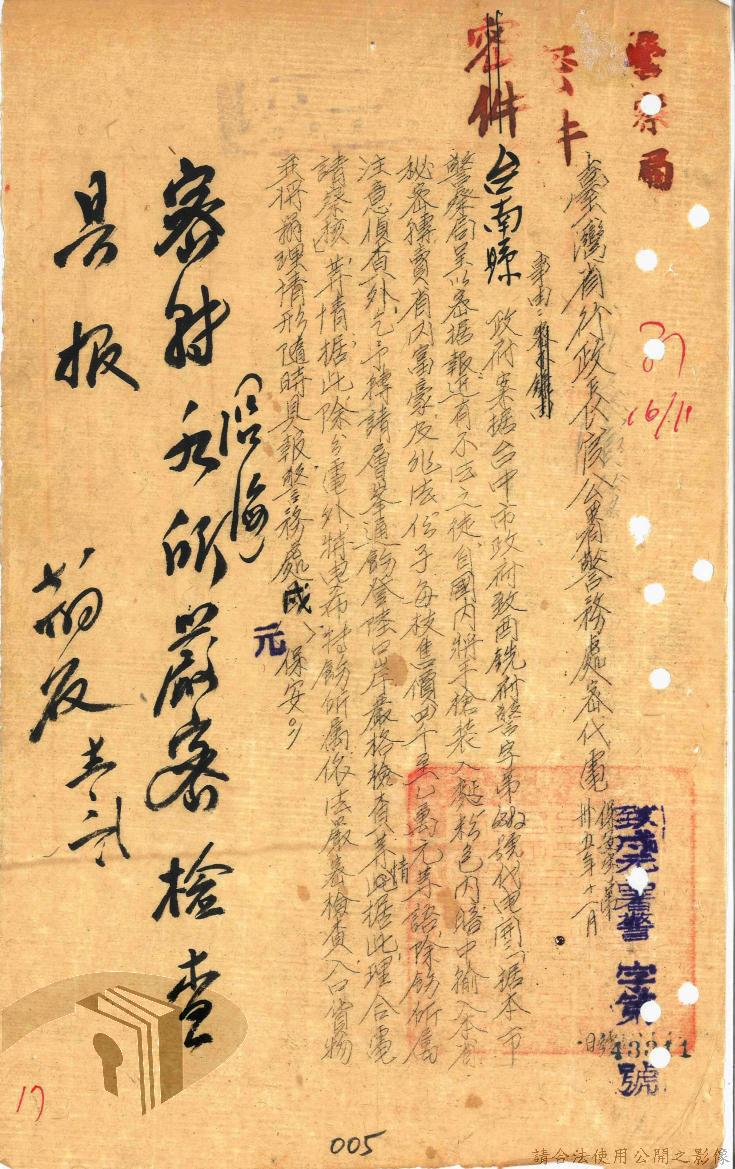 警察局
密件
臺灣省行政長官公署警務處密代電
卅五年十一月 日
致戌元署警字第43311號
事由:
台南縣政府案据台中市政府致酉銑府警字第 號代電開「据本市
警察局呈以密据報近有不法之徒自國內將手槍裝入麵粉包內暗中輸入本省
秘密轉賣省內富豪及非法份子每枝售價四千至乙萬元等語除飭所屬
注意偵查外乞予轉請層峯通飭登陸口岸嚴格檢查等情据此理合電
請察核」等情据此除分電外特電希特飭所屬依法嚴密檢查入口貨物
並將辦理情形隨時具報警務處戌元保安
密 所嚴密檢查
沿海
具报
16/11
17
005
請合法使用公開之影像